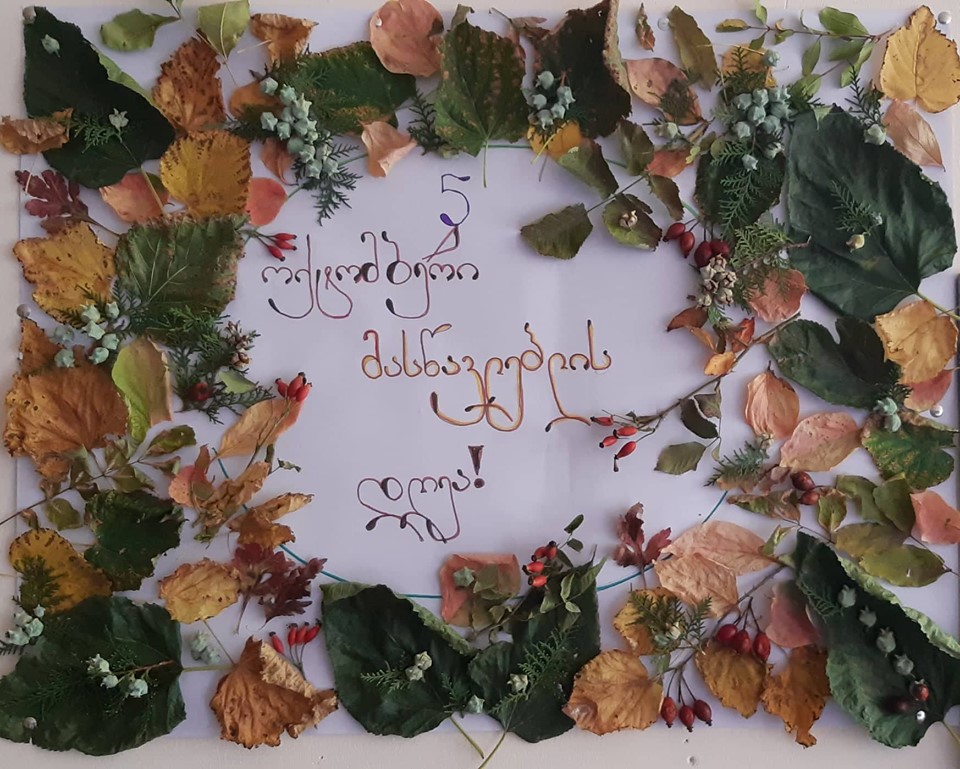 5
ოქტომბერი
მასწავლებლის
დღეა!